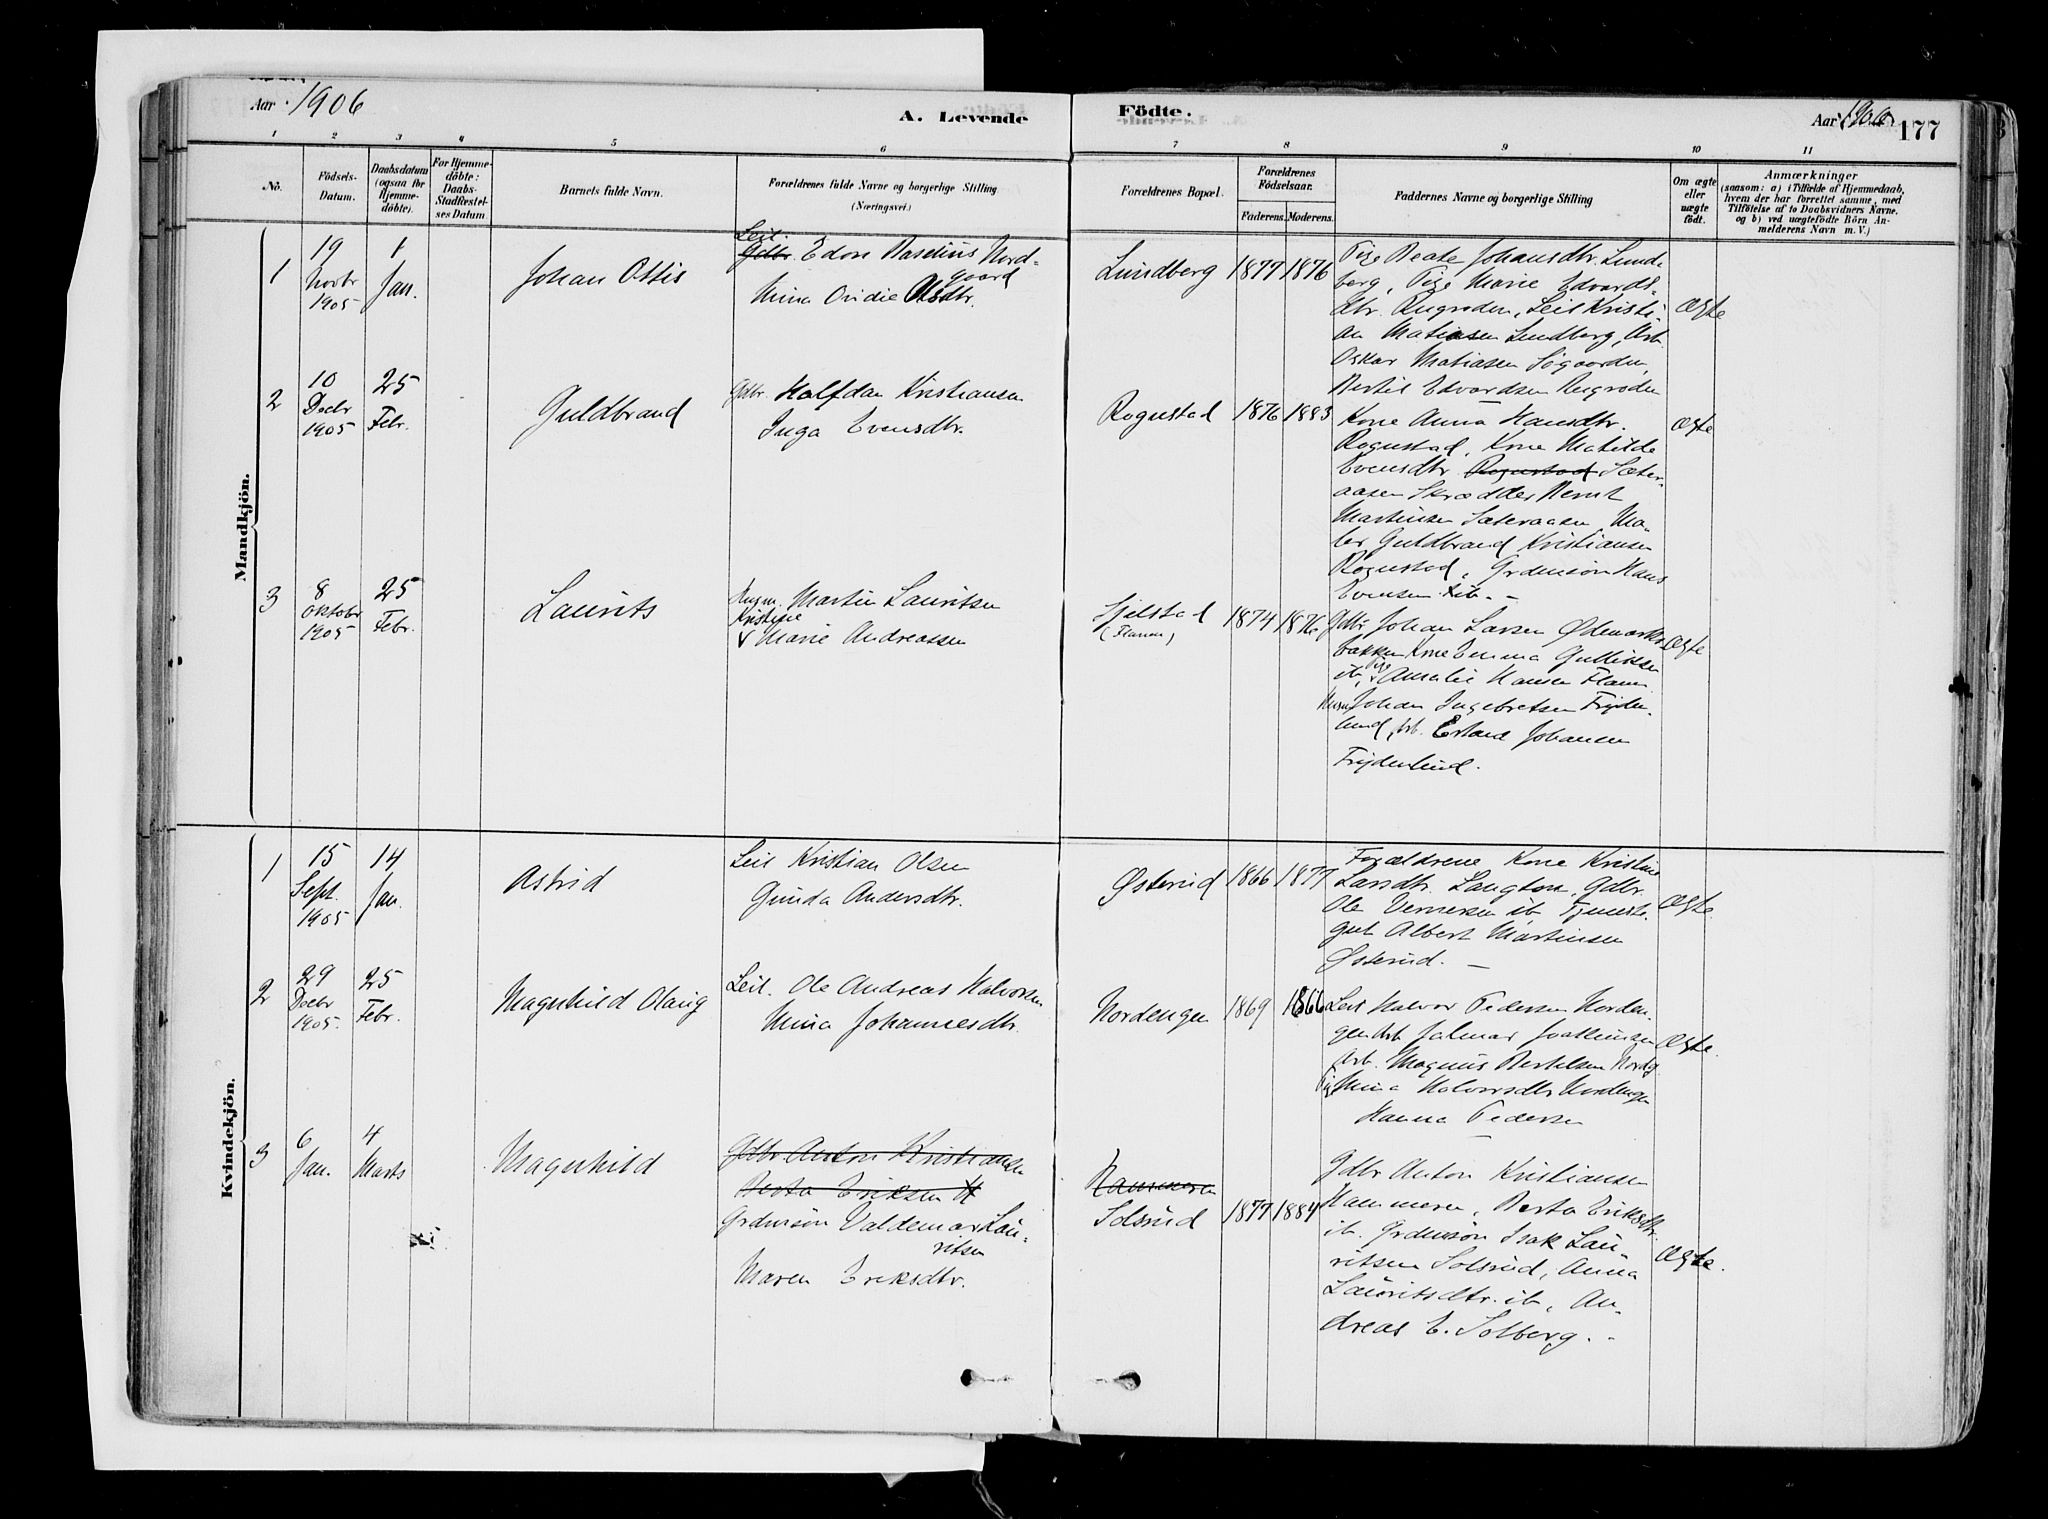 Aar 1906
A. Levende
Födte.
Aar 1906
177
1 2 3 4 5 6 7 8 9 10 11
No.
Födsels-Datum.
Daabsdatum (ogsaa for Hjemmedöbte).
For Hjemmedöbte: Daabs-Stadfæstelses Datum.
Barnets fulde Navn.
Forældrenes fulde Navne og borgerlige Stilling (Næringsvei.)
Forældrenes Bopæl.
Forældrenes Födselsaar.
Faderens. Moderens.
Faddernes Navne og borgerlige Stilling
Om ægte eller uægte födt.
Anmærkninger
(saasom: a) i Tilfælde af Hjemmedaab,
hvem der har forrettet samme, med
Tilföielse af to Daabsvidners Navne.
og b) ved uægtefödte Börn An-
melderens Navn m. V.)
Mandkjön.
1
19
Novbr
1905
1
Jan.
Johan Ottis
Leil.
Gdbr. Edon Baselius Nord-
gaard
Mina Ovidie Olsdtr.
Lundberg
1877
1876
Pige Beate Johansdtr. Lund-
berg, Pige Marie Edvards-
dtr. Rugroden, Leil Kristi-
an Matiasen Lundberg, Arb.
Oskar Matiasen Søgaarden,
Bertil Edvardsen Rugroden
Ægte
2
10
Decbr
1905
25
Febr.
Guldbrand
Gdbr. Halfdan Kristiansen
Inga Evensdtr.
Rognstad
1876
1883
Kone Anna Hansdtr.
Rognstad, Kone Matilde
Evensdtr. Rognstad Sæter-
aasen Skrædder Bernt
Martinsen Sæteraasen, Ma-
ler Guldbrand Kristiansen
Rognstad, Grdmsøn Hans
Evensen ib. -
Ægte
3
8
Oktobr
1905
25
Febr.
Laurits
Husm. Martin Lauritsen
Kristine
& Marie Andreassen
Sjelstad
(Flauen)
1874
1876
Gdbr Johan Larsen Ødemarks-
bakken Kone Emma Gulliksen
ib, Pige Amalie Hansen Flauen
Husm Johan Ingebretsen Frijden-
lund, Arb. Erland Johansen
Frijdenlund.
Ægte
Kvindekjön.
1
15
Sept.
1905
14
Jan.
Astrid
Leil Kristian Olsen
Gunda Andersdtr.
Østerud
1866
1877
Forældrene, Kone Kristine
Larsdtr. Langton, Gdbr.
Ole Vernersen ib. Tjeneste-
gut Albert Martinsen
Østerud. -
Ægte.
2
29
Decbr
1905.
25
Febr.
Magnhild Olaug
Leil. Ole Andreas Halvorsen
Mina Johannesdtr.
Nordengen
1869
1866
Leil Halvor Pedersen Norden-
gen Arb. Jalmar Joakimsen
Arb. Magnus Bertelsen Nordg.
Pige Mina Halvorsdtr Nordengen
Hanna Pedersen
Ægte.
3
6
Jan.
4
Marts
Magnhild
Gdbr Anton Kristiansen
Berta Eriksen
Grdmsøn Valdemar Lau-
ritsen
Maren Eriksdtr.
Hammeren
Solsrud
1877
1884
Gdbr Anton Kristiansen
Hammeren, Berta Eriksdtr.
ib. Grdmsøn Isak Lau-
ritsen Solsrud, Anna
Lauritsdtr. ib, An-
dreas E. Solberg. -
Ægte.